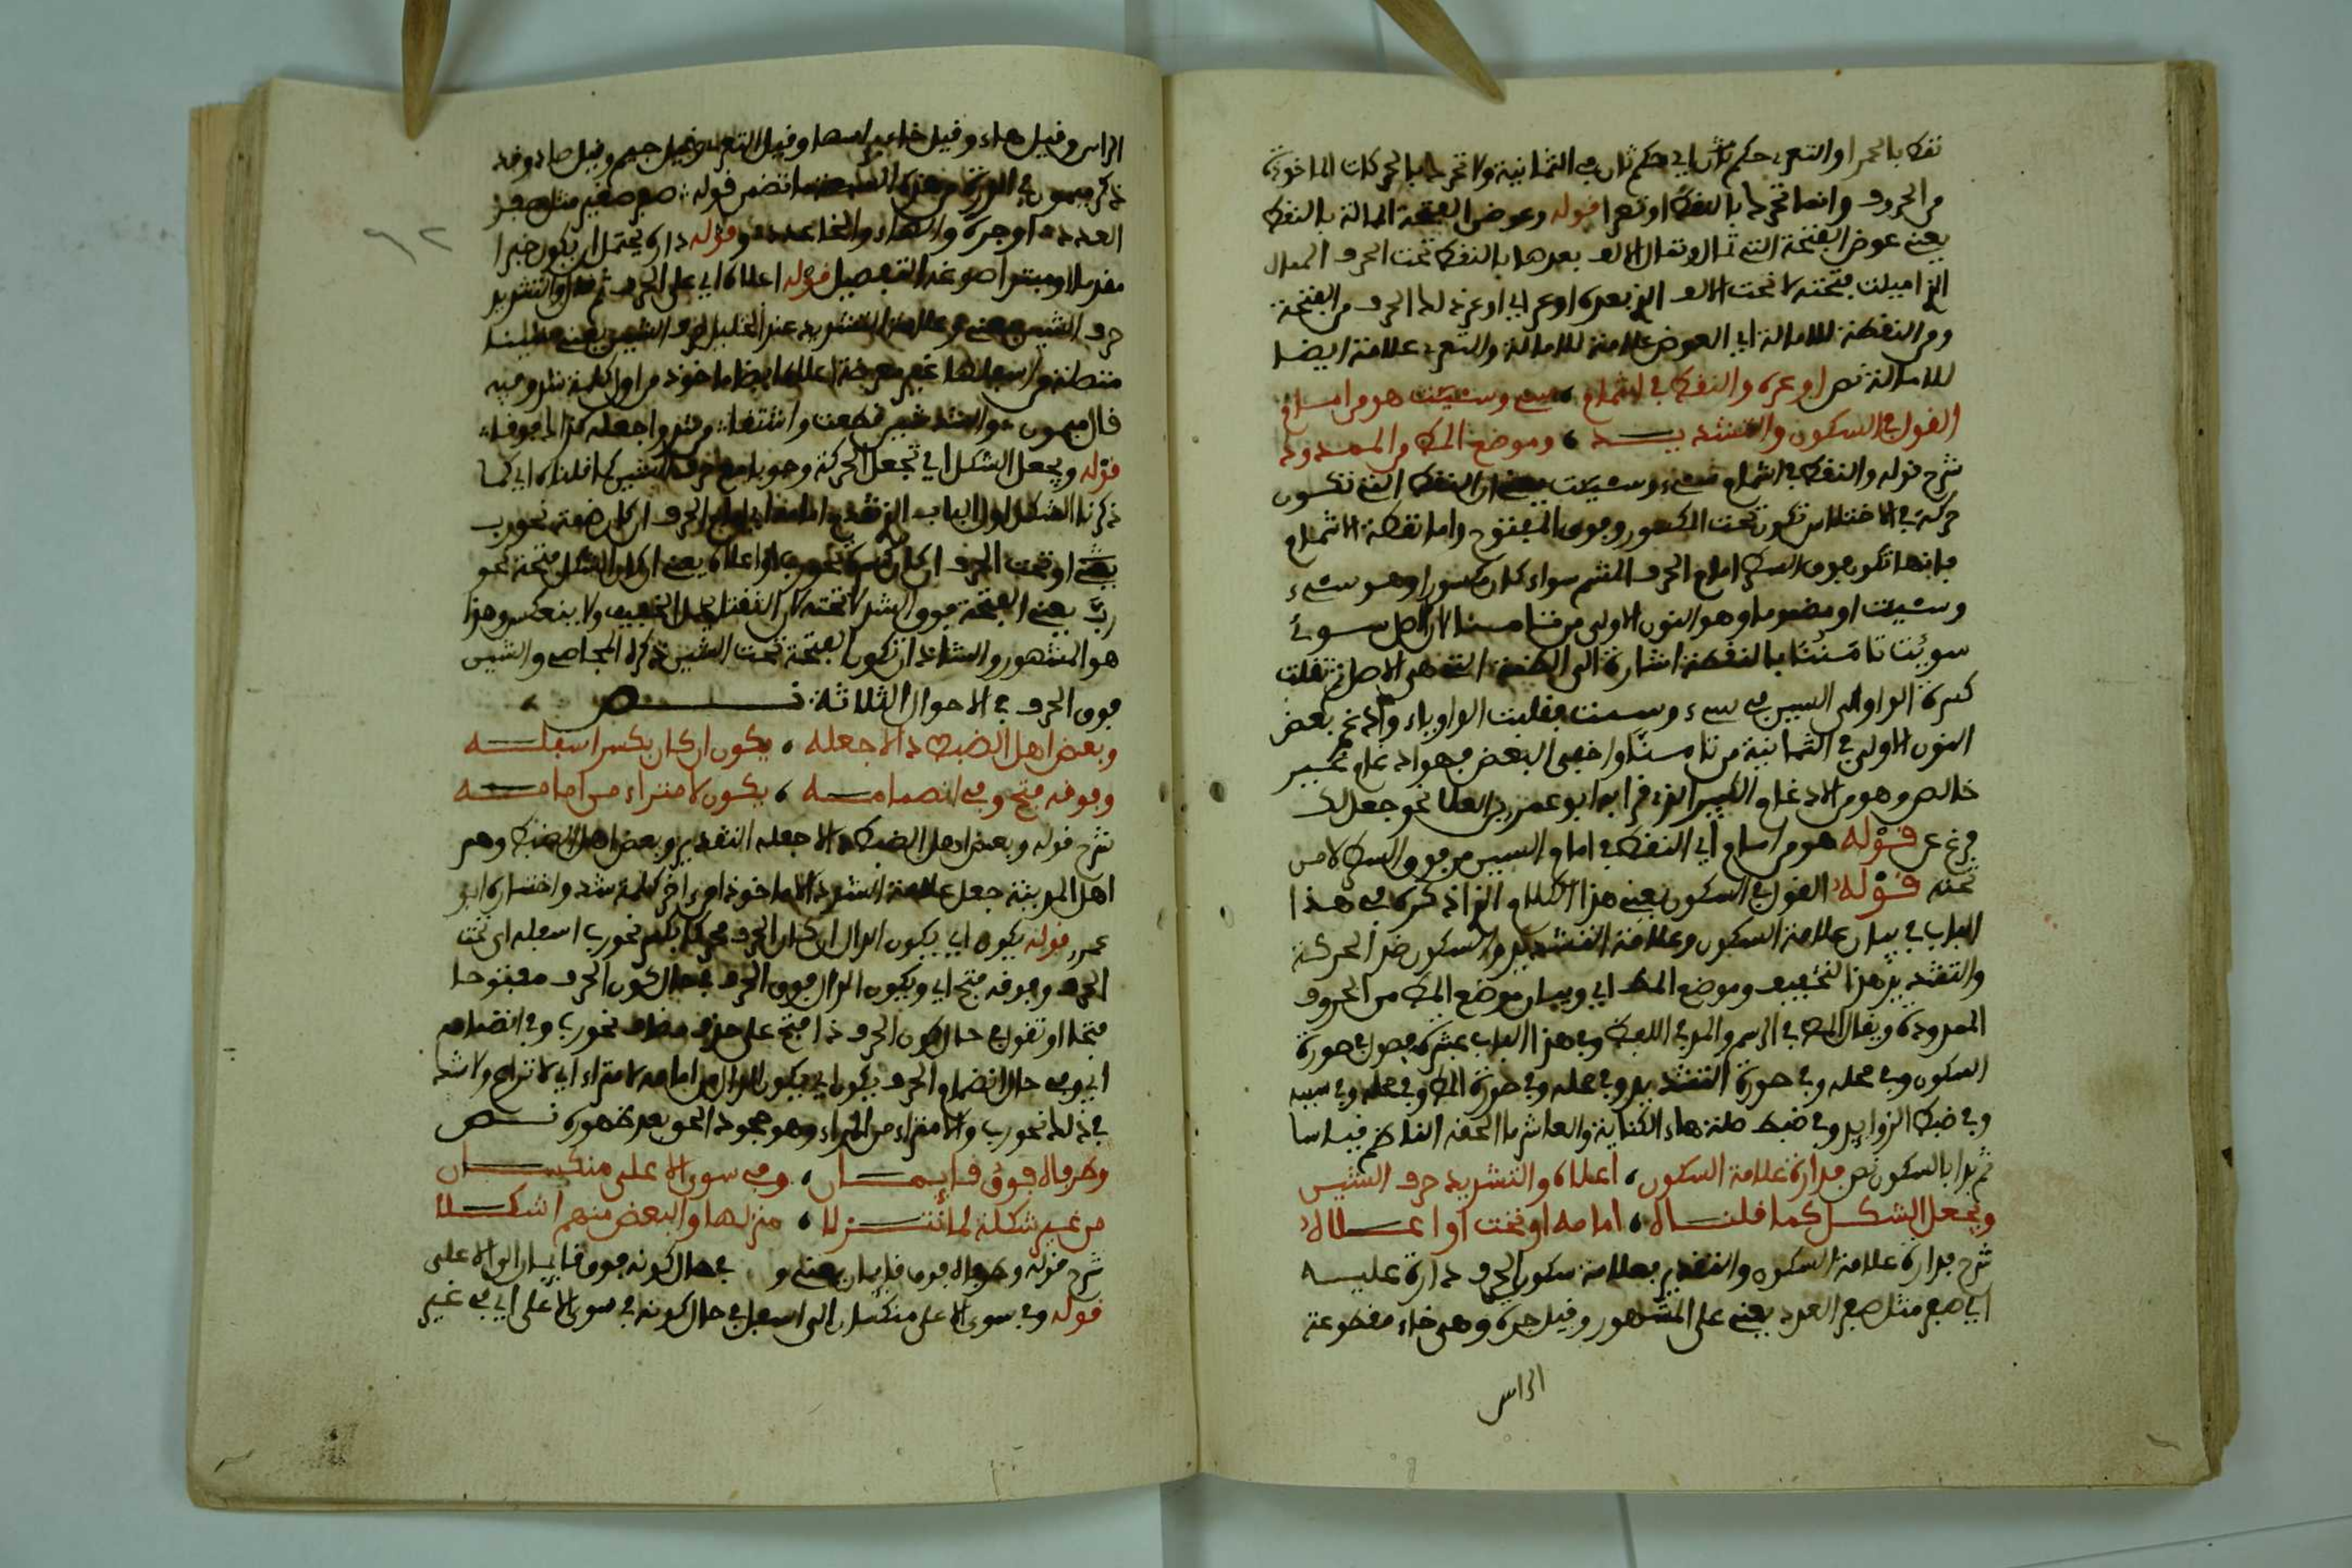 نقط بالحمرا والتعر حكم ثان اي حكم ثان في الثمانية ولا تحر بالحركات الماخوذة
من الحروف وانما تحر بالنقط او تعرا قوله وعوض الفتحة الممالة بالنقط
يعني عوض الفتحة التي تمال وتمال الالف بعدها بالنقط تحت الحرف الممال
الذي اميلت فتحته لا تحت الالف الذي بعده او عر اي او عر ذلك الحرف من الفتحة
ومن النقطة للامالة اي العوض علامة للامالة والتعر علامة ايضا
للامالة نص او عره والنقط في اشمام سيء وسيئت هو من امام
القول في السكون والتشديد وموضع المط من الممدود
شرح قوله والنقط في اشمام سيء وسيئت يعني ان النقط التي تكون
حركة في الاختلاس تكون تحت المكسور وفوق المفتوح واما نقطة الاشمام
فانها تكون فوق السطر امام الحرف المشم سواء كان مكسورا وهو سيء
وسيئت او مضموما وهو النون الاولى من تامنا لان اصل سوئ
سوئت تامننا بالنقطة اشارة الى الضمة التي هي الاصل ثم نقلت
كسرة الواو الى السين في سيء وسيئت فقلبت الواو ياء وادغم بعض
النون الاولى في الثانية من تامنا واخفى البعض فهو ادغام غير
خالص وهو من الادغام الكبير الذي قرا به ابو عمرو بن العلا نحو جعل لك
فرغ عن قوله هو من امام اي النقط في امام السين من فوق السطر لا من
تحته قوله القول في السكون يعني هذا الكلام الذي اذكره في هذا
الباب في بيان علامة السكون وعلامة التشديد والسكون ضد الحركة
والتشديد ضد التخفيف وموضع المط اي وبيان موضع المط من الحروف
الممدودة ويقال المط في الرسم والمد في اللفظ وفي هذا الباب عشرة فصول في صورة
السكون وفي محله وفي صورة التشديد وفي محله وفي صورة المط وفي محله وفي سببه
وفي ضبط الزوايد وفي ضبط صلة هاء الكناية والعاشر ما الحقه الناظم قياسا
ثم بدا بالسكون نص فدارة علامة السكون اعلاه والتشديد حرف الشين
ويجعل الشكل كما قلناه امامه او تحت او اعلاه
شرح فدارة علامة السكون والتقدير فعلامة سكون الحرف دارة عليه
اي صفر مثل صفر العدد يعني على المشهور وقيل جره وهي خاء مقطوعة
الراس
الراس وقيل هاء وقيل خاء بر اسها وقيل التعر وقيل جيم وقيل صاد وقد
ذكر ميمون في الدرة من هذه السبعة ما تضمن قوله صفر صغير مثل صفر
العدد او جره والهاء والخا عدد وقوله داره يحتمل ان يكون خبرا
مقدما او مبتدا صوغه التفصيل قوله اعلاه اي على الحرف ثم قال والتشديد
حرف الشين يعني وعلامة التشديد عند الخليل حرف الشين يعني شينا
متصلة واسنانها غير معرقة اعلاه ايضا ماخوذ من اول كلمة شد وفيه
قال ميمون والشد شين قطعت وانتقا وشد واجعله كذا المعرقا
قوله ويجعل الشكل اي تجعل الحركة وجوبا مع حرف الشين كما قلناه اي كما
ذكرنا الشكل اول الباب الذي تقدم اما امام الحرف ان كان ضمة نحو رب
يعني او تحت الحرف ان كان كسرة نحو رب او اعلاه يعني ان كان الشكل فتحة نحو
رب يعني الفتحة فوق الشد لا تحته لان الثقيل يحمل الخفيف ولا ينعكس وهذا
هو المشهور والشاذ ان تكون الفتحة تحت الشين ذكره المجاصي والشين
فوق الحرف في الاحوال الثلاثة نص
وبعض اهل الضبط دالا جعله يكون ان كان بكسر اسفله
وفوقه فتح وفي انضمامه يكون لا امتراء من امامه
شرح قوله وبعض اهل الضبط دالا جعله التقدير وبعض اهل الضبط وهم
اهل المدينة جعل علامة الشد دالا ماخوذا من اخر كلمة شد واختاره ابو
عمرو قوله يكون اي يكون الدال ان كان الحرف محركا بكسر نحو رب اسفله اي تحت
الحرف وفوقه فتح اي ويكون الدال فوق الحرف في حال كون الحرف مفتوحا
فتحا او تقول في حال كون الحرف ذا فتح على حذف مضاف نحو رب وفي انضمامه
اي وفي حال انضمام الحرف يكون اي يكون الدال من امامه لا امتراء اي لا نزاع ولا شك
في ذلك نحو رب والامتراء من المراء وهو جحود الحق بعد ظهوره نص
وطرفاه فوق قايمان وفي سوى الاعلى منكسان
من غير شكلة لما تنزلا منزلها والبعض منهم اشكلا
شرح قوله وطرفاه فوق قايمان يعني و في حال كونه فوق قايمان الى الاعلى
قوله وفي سوى الاعلى منكسان الى اسفل في حال كونه في سوى الاعلى اي في غير